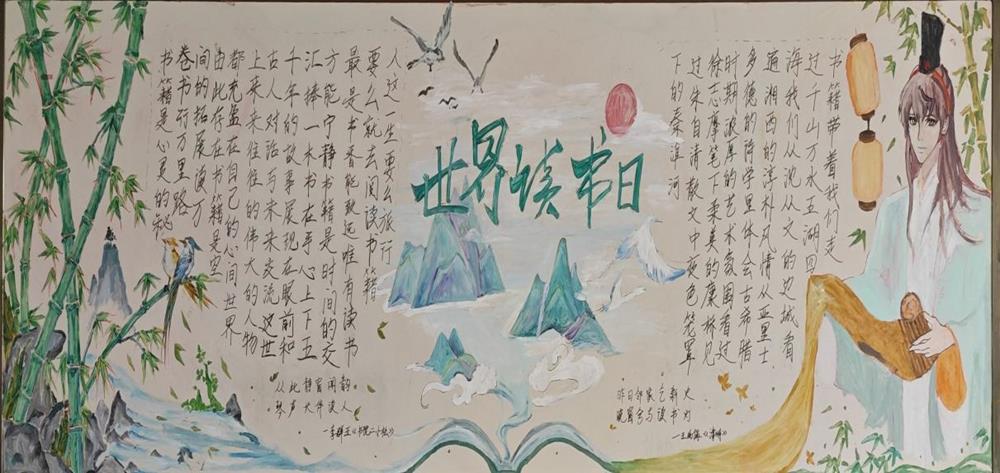 世界读书日
书籍带着我们走
过千山万水五湖四
海我们从沈从文的边城看
遍湘西的淳朴风情从亚里士
多德的诗学里体会古希腊
时期浓厚的艺术氛围看过
徐志摩笔下柔美的康桥见
过朱自清散文中夜色笼罩
下的秦淮河
昨日邻家乞新火
晓窗分与读书灯
—王禹偁《清明》
人这一生要么旅行
要么就去阅读书籍
最是书香能致远唯有读书
方能宁静书籍是时间的交
汇捧一本书在手心上下五
千年的故事展现在眼前和
古人对话与未来交流这世
上来来往往的伟大的人物
都充盈在自己的心间世界
由此存在在书籍是空
间的拓展读万
卷书行万里路
书籍是心灵的秘
从此静窗闻韵
琴声伴读人
—李群玉《书院二小松》